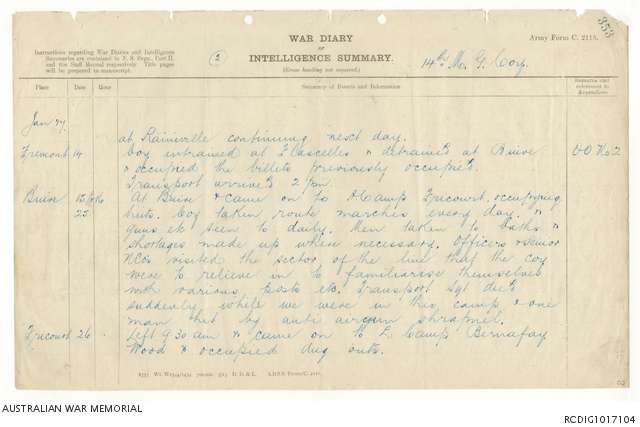 353
Army Form C. 2118.
WAR DIARY
or
INTELLIGENCE SUMMARY.
(Erase heading not required.)
Instructions regarding War Diaries and Intelligence
Summaries are contained in F. S. Regs., Part II.
and the Staff Manual respectively. Title pages
will be prepared in manuscript.
(2)
14th M. G. Coy.
Place Date Hour Summary of Events and Information Remarks and references to Appendices
Jan 17.
at Rainiville continuing next day.
Fremont 14 Coy entrained at Flascelles & detrained at Buire O O No 2
& occupied the billets previously occupied.
Transport arrived 2 pm.
Buire 15 to
25 At Buire & came on to Camp Fricourt, occupying
huts. Coy taken route marches every day, &
guns etc seen to daily. Men taken to baths &
shortages made up when necessary. Officers & senior
NCOs visited the sector of the line that the coy
were to relieve in to familiarise themselves
with various posts etc. Transport Sgt died
suddenly while we were in this camp & one
man hit by anti aircraft shrapnel.
Fricourt 26 Left 9 30 am & came on to Camp Bernafay
Wood & occupied dug outs.
AUSTRALIAN WAR MEMORIAL
RCDIG1017104